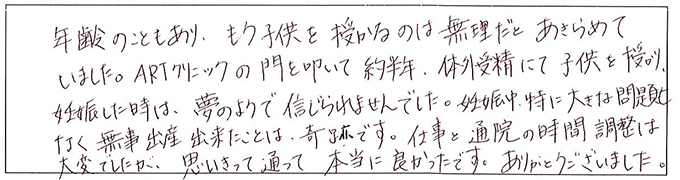 年齢のこともあり、もう子供を授かるのは無理だとあきらめて
いました。ARTクリニックの門を叩いて約半年、体外受精にて子供を授かり、
妊娠した時は、夢のようで信じられませんでした。妊娠中、特に大きな問題も
なく無事出産出来たことは、奇跡です。仕事と通院の時間調整は
大変でしたが、思いきって通って本当に良かったです。ありがとうございました。